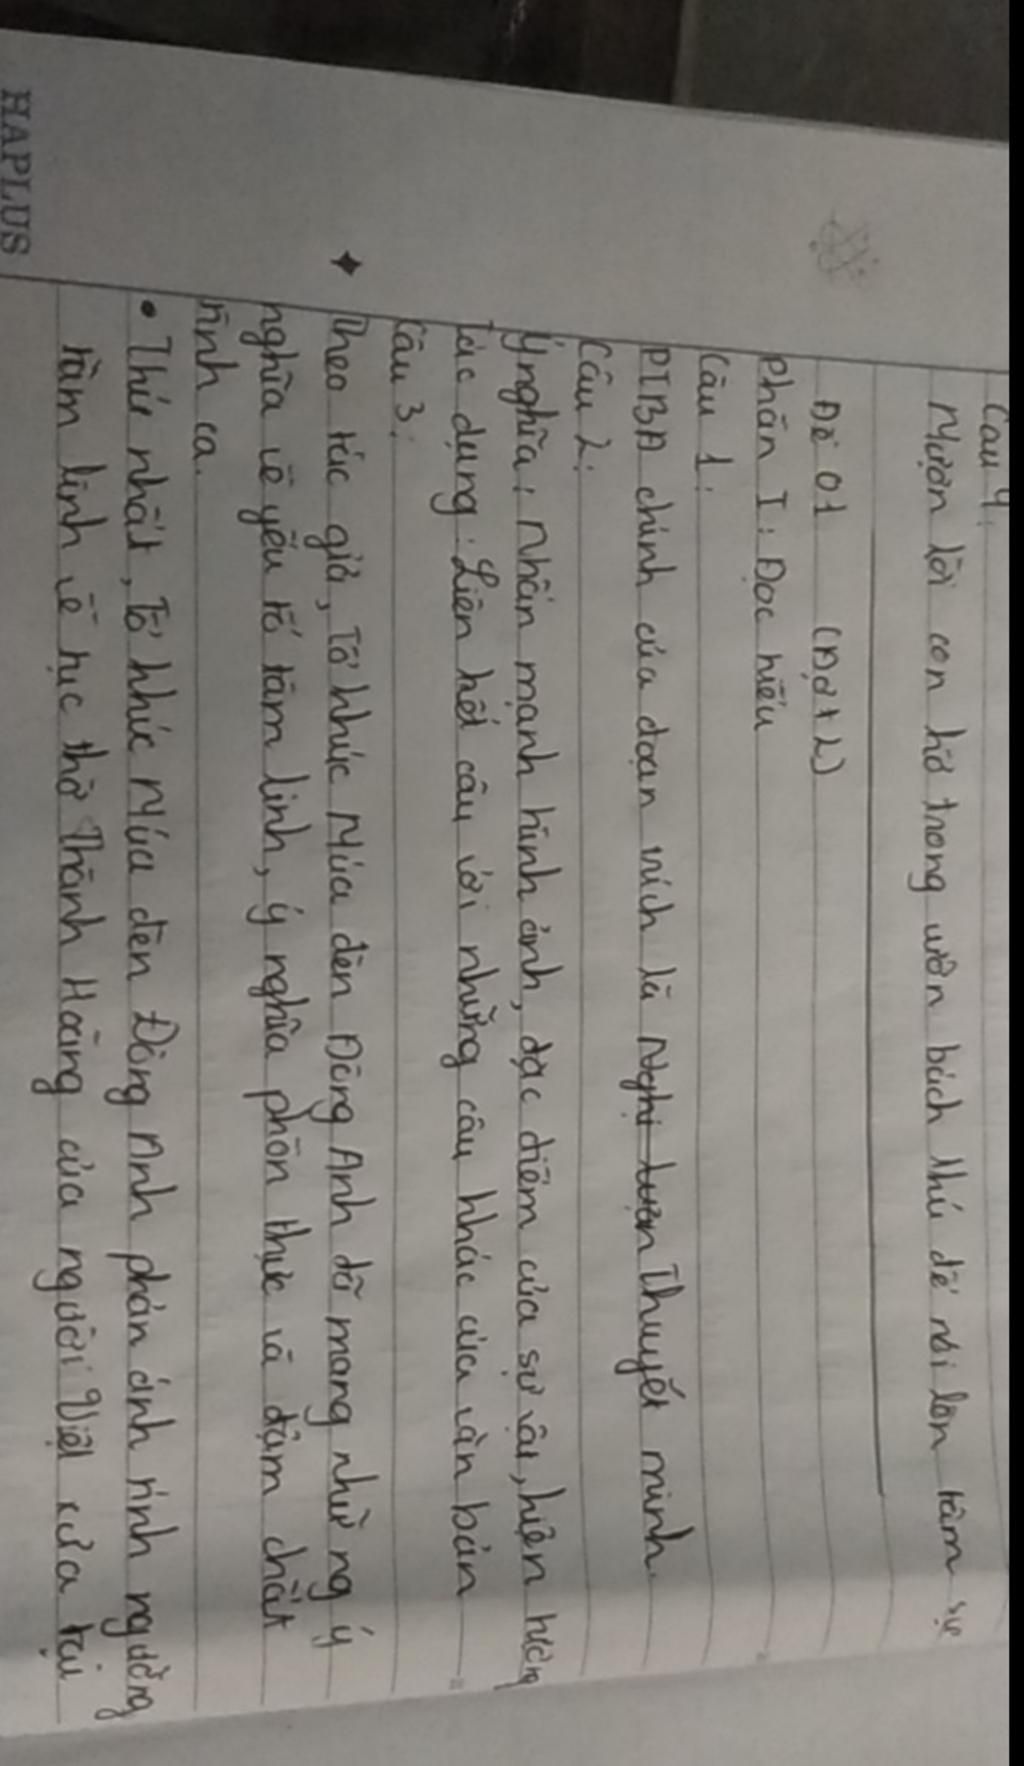 Câu 4:
Mượn lời con hổ trong vườn bách thú để nói lên tâm sự
Đề 01 (Đợt 2)
Phần I: Đọc hiểu
Câu 1:
PTBĐ chính của đoạn trích là Nghị luận Thuyết minh.
Câu 2:
Ý nghĩa: Nhấn mạnh hình ảnh, đặc điểm của sự vật, hiện tượng
Tác dụng: Liên kết câu với những câu khác của văn bản
Câu 3:
Theo tác giả, Tổ khúc Múa đèn Đông Anh đã mang những ý
nghĩa về yếu tố tâm linh, ý nghĩa phồn thực và đậm chất
tình ca.
• Thứ nhất, Tổ khúc Múa đèn Đông Anh phản ánh tính ngưỡng
tâm linh về tục thờ Thành Hoàng của người Việt xưa tại
HAPLUS